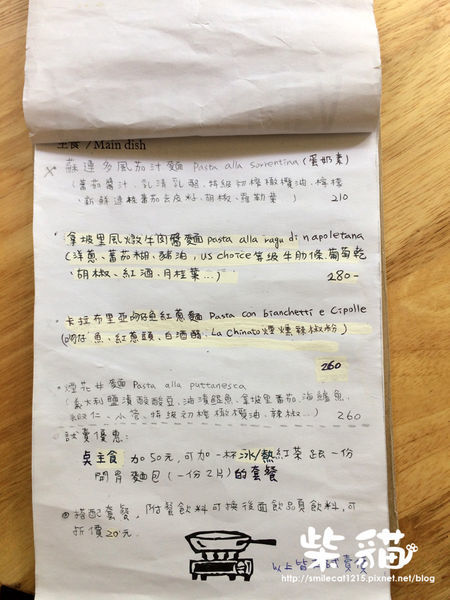 主食 / Main dish
蘇連多風茄汁麵 Pasta alla sorrentina (蛋奶素)
(蕃茄醬汁、乳清乳酪、特級初榨橄欖油、檸檬
、新鮮連枝蕃茄去皮籽、胡椒、羅勒葉 ) 210
拿坡里風燉牛肉醬麵 pasta alla ragu di napoletana
(洋蔥、蕃茄糊、豬油, US choice等級牛肋條、葡萄乾
、胡椒、紅酒、月桂葉...) 280-
卡拉布里亞吻仔魚紅蔥麵 Pasta con bianchetti e Cipolle
(吻仔魚、紅蔥頭、白酒醋、La Chinato煙燻辣椒粉)
260
煙花女麵 Pasta alla puttanesca
(義大利鹽漬酸豆、油漬鯷魚、拿坡里蕃茄、海鱺魚、
蝦仁、小卷、特級初榨橄欖油、辣椒...) 260
試賣優惠:
點主食加50元,可加一杯冰/熱紅茶跟一份
開胃麵包(一份2片)的套餐
搭配套餐,附餐飲料可換後面飲品頁飲料,可
折價20元.
以上皆為試賣價
柴貓
http://smilecat1215.pixnet.net/blog